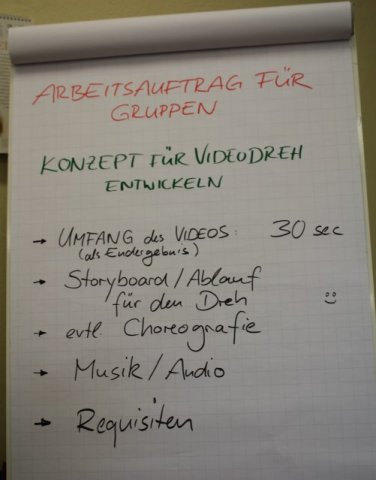 ARBEITSAUFTRAG FÜR
GRUPPEN
KONZEPT FÜR VIDEODREH
ENTWICKELN
→ UMFANG des VIDEOS: 30 sec
(als Endergebnis)
→ Storyboard/Ablauf
für den Dreh
→ evtl. Choreografie
→ Musik/Audio
→ Requisiten